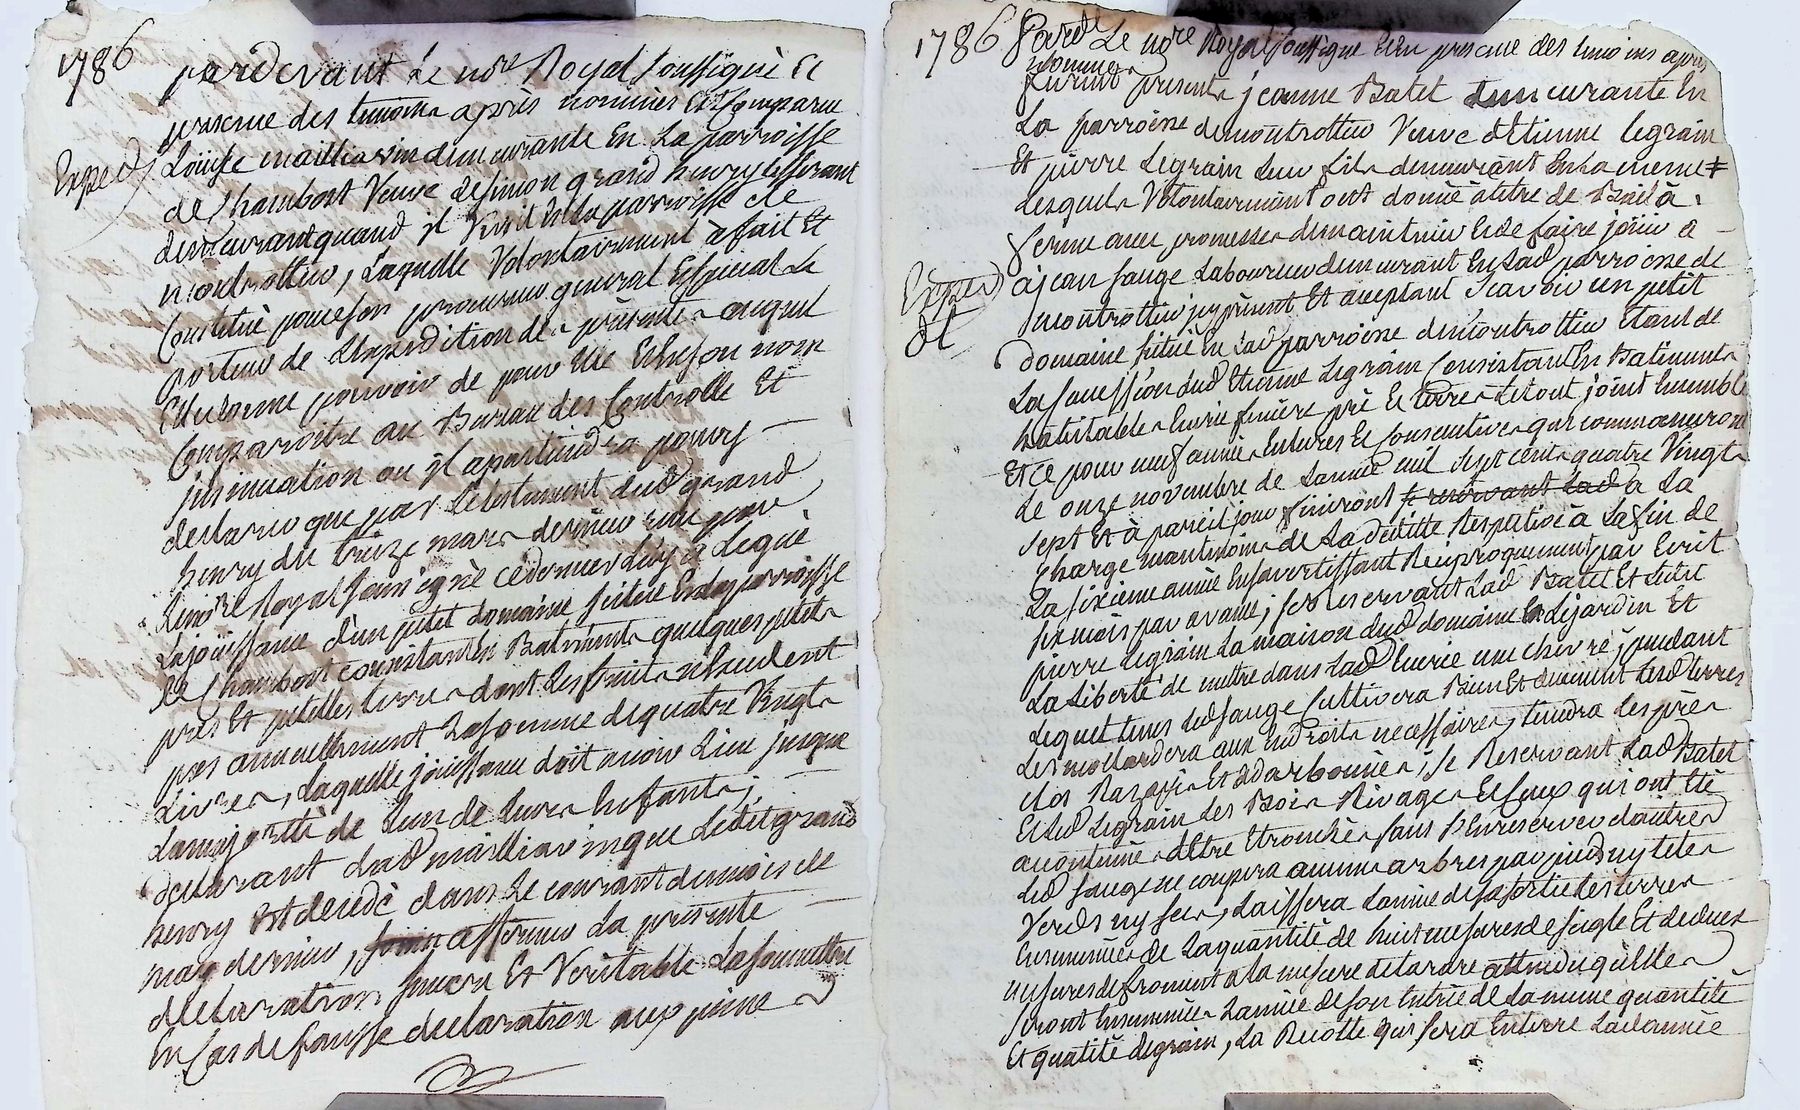 1786
pardevant Le nore Royal soussigné Et
presence des temoins après nommés Est Comparue
Expedé
Loüise maillavin demeurante En La parroisse
de Chambost Veuve de simon grand henry tisserant
demeurant quand il Vivit En la parroisse de
montrottier, Laquelle Volontairement à fait Et
Constitué pour son procureur general Especial Le
porteur de L'expedition des presentes auquel
Elle donne pouvoir de pour Elle Et En son nom
Comparoitre au Bureau des Controlle Et
insinuation ou il apartiendra pour y
declarer que par Le testament dud grand
henry du treize mars dernier reçu par
Le nore Royal soussigné ce dernier luy a Legué
La joüissance d'un petit domaine situé En lad parroisse
de Chambost consistant En Batiments quelques petits
prés Et petittes terres dont Les fruits n'Excedent
pas annuellement La somme de quatre Vingt
Livres, Laquelle joüissance doit avoir Lieu jusque
La majorité de L'un de Leurs Enfants;
declarant Lad maillavin que Ledit grand
henry Est decedé dans Le courant du mois de
may dernier, affirmer La presente
declaration sincere Et Veritable La soumettre
En Cas de fausse declaration aux peines
1786
Pard Le nore Royal soussigné Et En presence des temoins apres
nommes
furent presents jeanne Batet demeurante En
La parroisse de montrottier Veuve d'Etienne Legrain
Et pierre Legrain Leur fils demeurant En La meme
Lesquels Volontairement ont donné à titre de Bail à
ferme avec promesses de maintenir Et de faire joüir
Expedé
dt
à jean fange Laboureur demeurant En Lad parroisse de
montrottier icy present Et aceptant sçavoir un petit
domaine situé En Lad parroisse de montrottier Etant de
La Succession dud Etienne Legrain Consistant En Batiments
habitables Ecurie feniere pré Et terres Le tout joint Ensemble
Et ce pour neuf années Entieres Et Consecutives qui commanceront
Le onze novembre de L'année mil sept cents quatre Vingt
sept Et à pareil jour finiront se reservant Lad à La
Charge neantmoins de La deditte Respective à La fin de
La sixieme année En s'avertissant Reciproquement par Ecrit
six mois par avance; se reservant Lad Batet Et Ledit
pierre Legrain La maison dud domaine Le jardin Et
La Liberté de mettre dans Lad Ecurie une chevre; pendant
Lequel tems Led fange Cultivera Bien Et duement Lesd terres
Les mollardera aux Endroits necessaires, tiendra Les prés
clos Razés Et Ebarbounés; se Reservant Lad Batet
Et Led Legrain Les Bois Rivages Et Ceux qui ont Eté
acoutumés d'Etre Etronchés sans S'En reserver d'autres
Led fange ne coupera aucuns arbres par pied ny tetes
Verds ny secs, Laissera L'année de sa sortie Les terres
Ensemencées de La quantité de huit mesures de seigle Et de deux
mesures de froment a la mesure de tarare attendu qu'Elles
seront Ensemencées L'année de son Entrée de La meme quantité
Et qualité de grain, La Recolte qui sera En terre Lad année